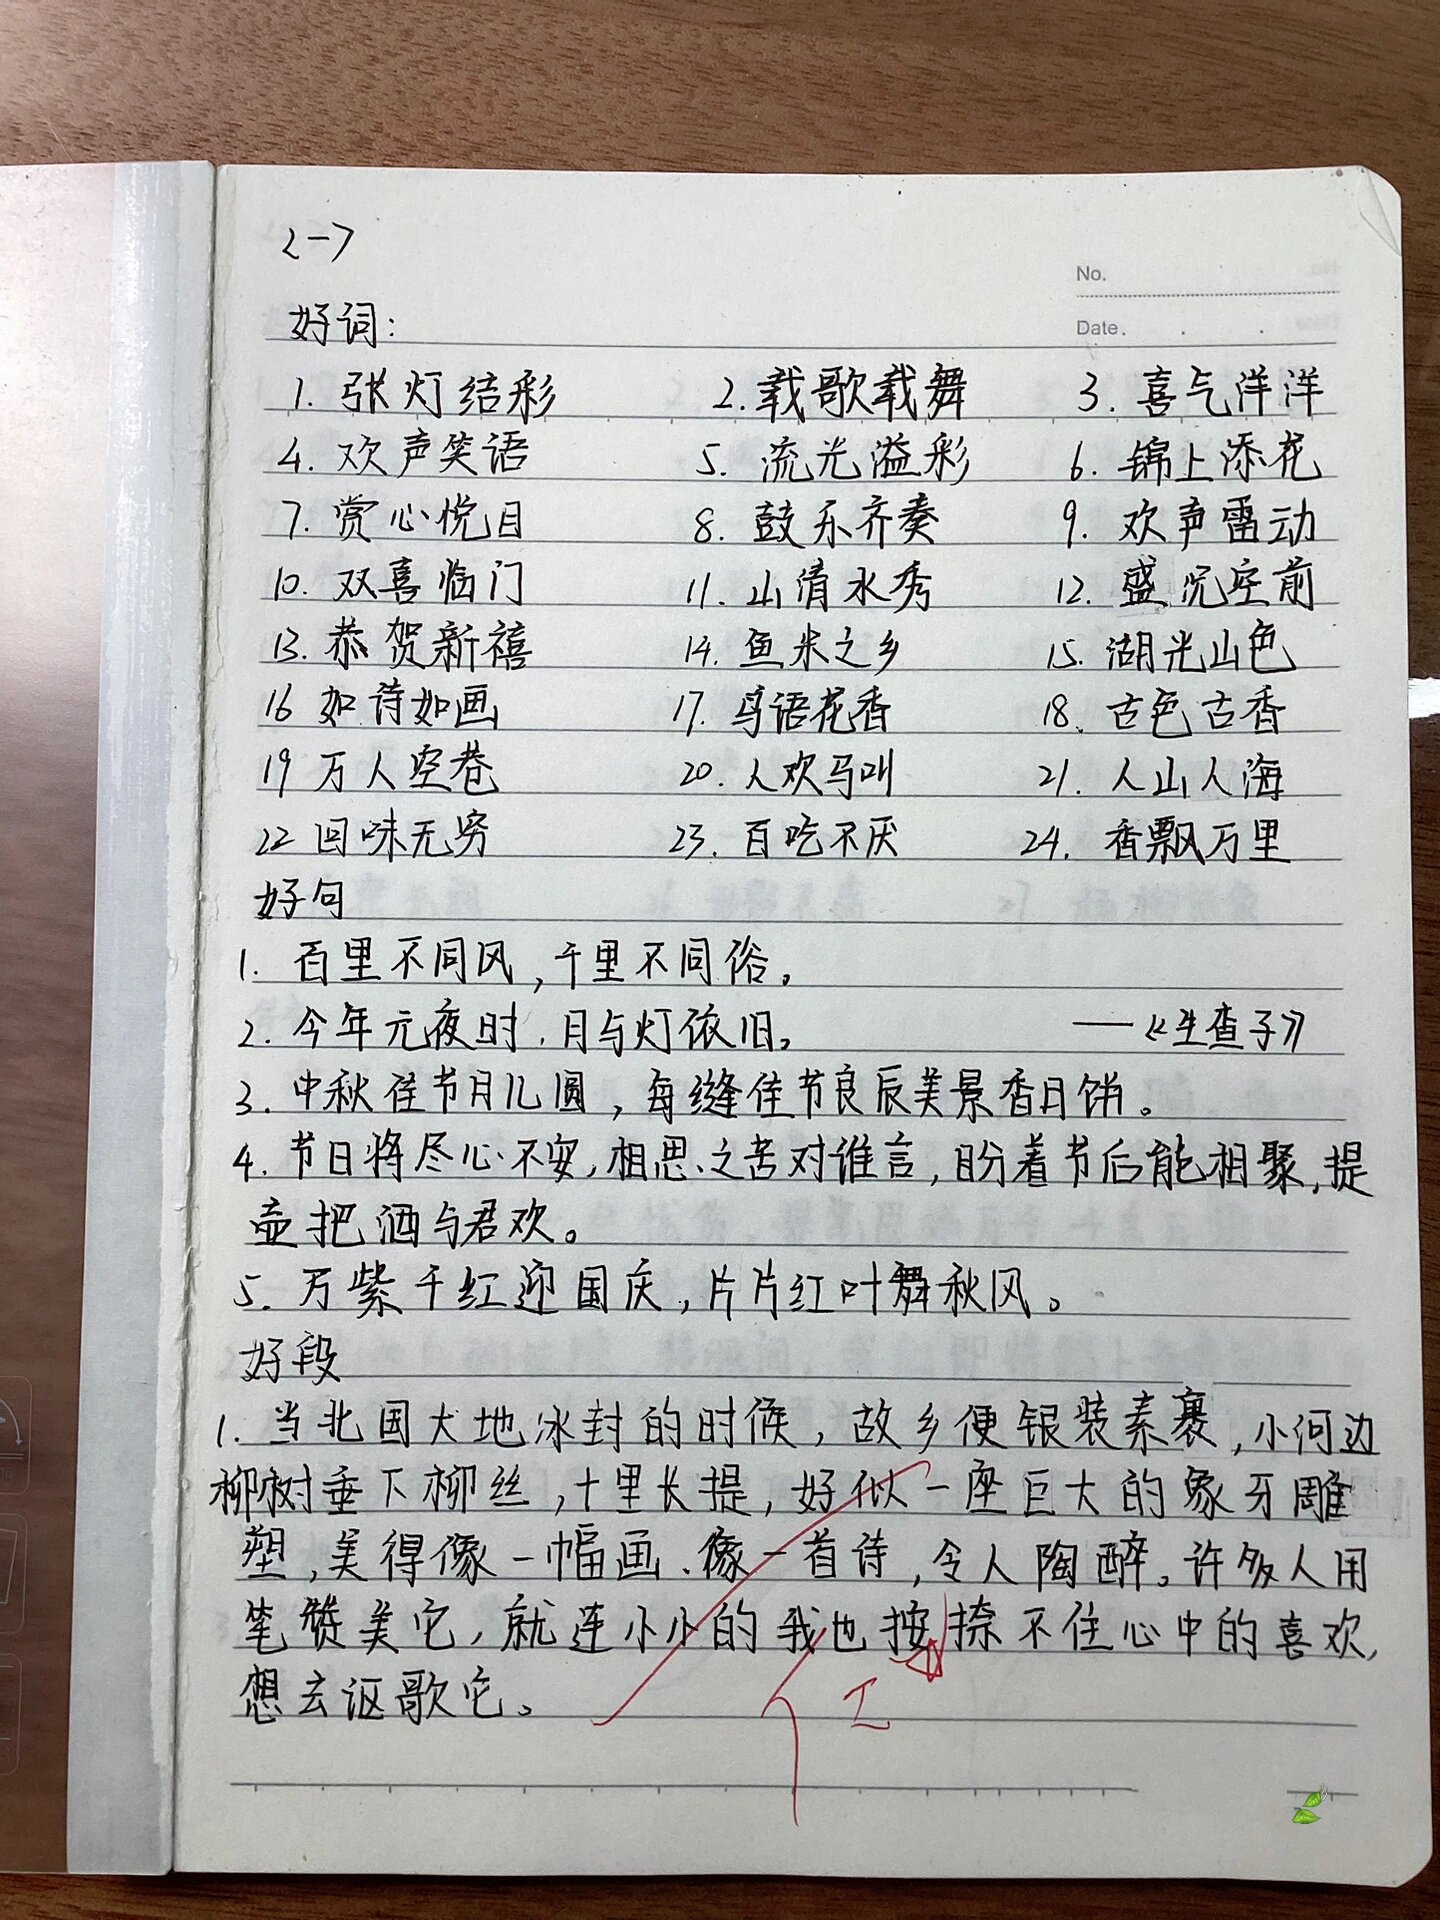 2-7
No.
好词:
Date. . .
1. 张灯结彩 2. 载歌载舞 3. 喜气洋洋
4. 欢声笑语 5. 流光溢彩 6. 锦上添花
7. 赏心悦目 8. 鼓乐齐奏 9. 欢声雷动
10. 双喜临门 11. 山清水秀 12. 盛况空前
13. 恭贺新禧 14. 鱼米之乡 15. 湖光山色
16 如诗如画 17. 鸟语花香 18. 古色古香
19 万人空巷 20. 人欢马叫 21. 人山人海
22 回味无穷 23. 百吃不厌 24. 香飘万里
好句
1. 百里不同风,千里不同俗。
2. 今年元夜时,月与灯依旧。 ——《生查子》
3. 中秋佳节月儿圆,每缝佳节良辰美景香月饼。
4. 节日将尽心不安,相思之苦对谁言,盼着节后能相聚,提
壶把酒与君欢。
5. 万紫千红迎国庆,片片红叶舞秋风。
好段
1. 当北国大地冰封的时候,故乡便银装素裹,小河边
柳树垂下柳丝,十里长提,好似一座巨大的象牙雕
塑,美得像一幅画、像一首诗,令人陶醉。许多人用
笔赞美它,就连小小的我也按捺不住心中的喜欢,
想去讴歌它。